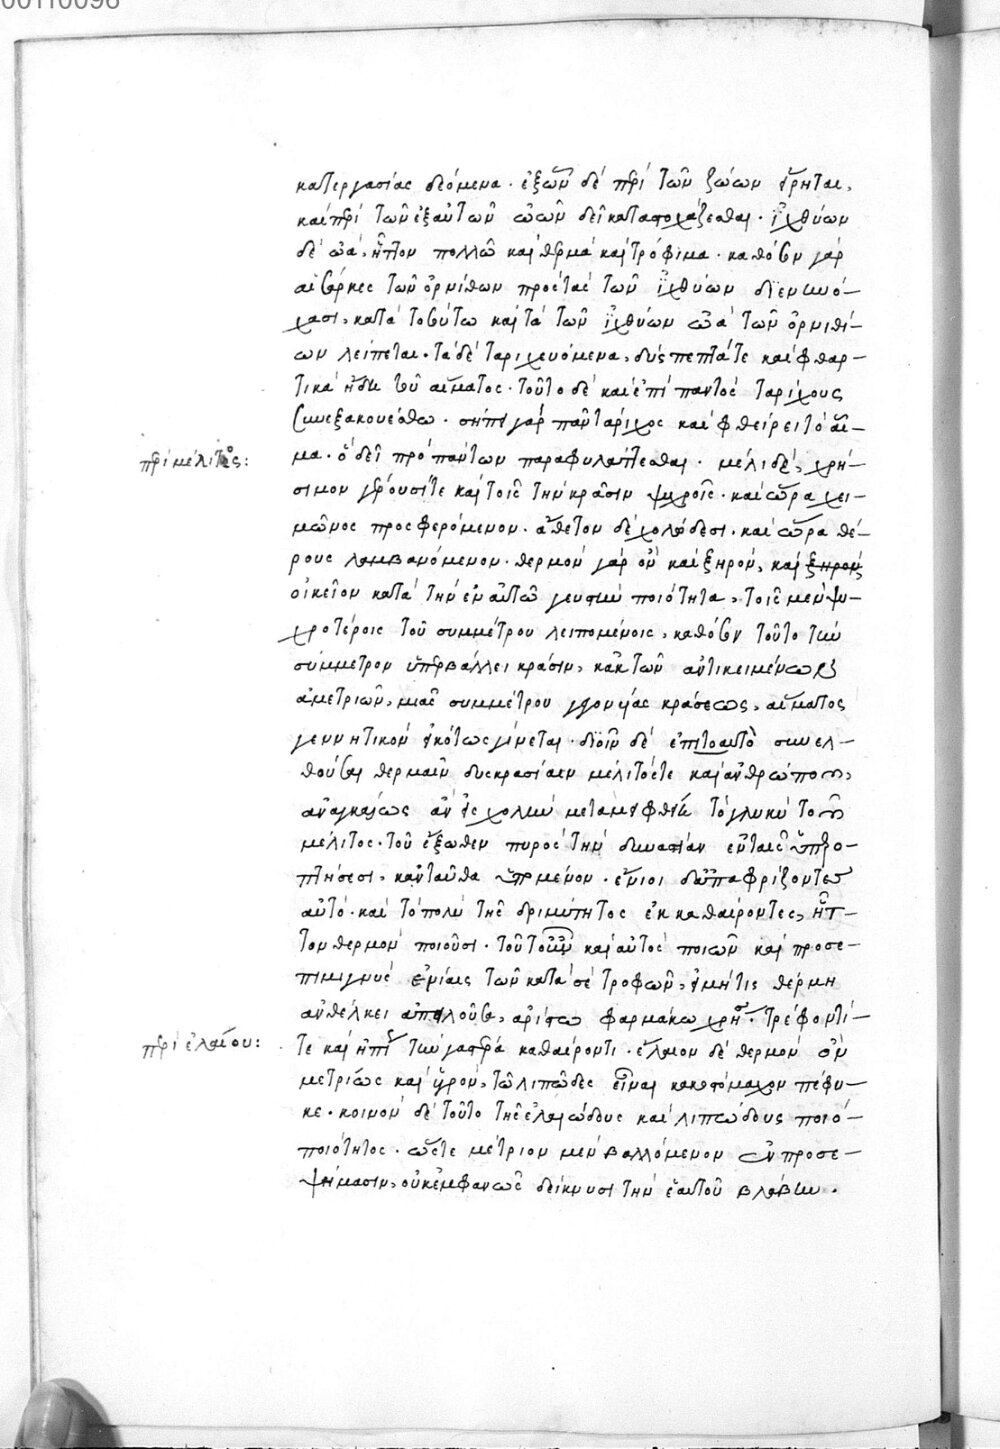 00110096
κατεργασίας δεόμενα. ἐξ ὧν δὲ περὶ τῶν ζώων εἴρηται,
καὶ περὶ τῶν ἐξ αὐτῶν ὠῶν δεῖ καταστοχάζεσθαι. ἰχθύων
δὲ ὠὰ, ἧττον πολλῶ καὶ θερμὰ καὶ τρόφιμα. καθόσον γὰρ
αἱ σάρκες τῶν ὀρνίθων πρὸς τὰς τῶν ἰχθύων διενηνό-
χασι, κατὰ τοσοῦτω καὶ τὰ τῶν ἰχθύων ὠὰ τῶν ὀρνιθί-
ων λείπεται. τὰ δὲ ταριχευόμενα, δύσπεπτά τε καὶ φθαρ-
τικὰ ἤδη τοῦ αἵματος. τοῦτο δὲ καὶ ἐπὶ παντὸς ταρίχους
συνεξακουέσθω. σήπει γὰρ πᾶν τάριχος καὶ φθείρει τὸ αἷ-
περὶ μέλιτος:
μα. ὃ δεῖ πρὸ πάντων παραφυλάττεσθαι. μέλι δὲ, χρή-
σιμον γέρουσί τε καὶ τοῖς τὴν κρᾶσιν ψυχροῖς. καὶ ὥρα χει-
μῶνος προσφερόμενον. ἄθετον δὲ χολώδεσι. καὶ ὥρα θέ-
ρους λαμβανόμενον. θερμὸν γὰρ ὂν καὶ ξηρὸν, καὶ ξηρὸν
οἰκεῖον κατὰ τὴν ἐν αὐτῶ γευστὴν ποιότητα, τοῖς μὲν ψυ-
χροτέροις τοῦ συμμέτρου λειπομένοις, καθόσον τοῦτο τὴν
σύμμετρον ὑπερβάλλει κρᾶσιν, κἀκ τῶν ἀντικειμένων
ἀμετριῶν, μιᾶς συμμέτρου γεονυίας κράσεως, αἵματος
γεννητικὸν εἰκότως γίνεται. δυοῖν δὲ ἐπιτοαυτὸ συνελ-
θούσαι θερμαῖν δυσκρασίαιν μέλιτός τε καὶ ἀνθρώπου,
ἀναγκαίως ἂν εἰς χολὴν μεταμειφθείη τὸ γλυκὺ τοῦ
μέλιτος. τοῦ ἔξωθεν πυρὸς τὴν δυνασίαν ἐν ταῖς ὑπερο-
πτήσεσι, κἀνταῦθα ὑπομένον. ἔνιοι δ' ἀπαφρίζοντες
αὐτὸ. καὶ τὸ πολὺ τῆς δριμύτητος ἐκκαθαίροντες, ἧτ-
τον θερμὸν ποιοῦσι. τοῦτο οὖν καὶ αὐτὸς ποιῶν καὶ προσε-
πιμιγνὺς ἐνίαις τῶν κατὰ σὲ τροφῶν, εἰ μή τις θέρμη
ἀνθέλκει ἀπελοῦσα, ἀρίστω φαρμάκω χρῆσαι. τρέφοντί
περὶ ἐλαίου:
τε καὶ ἠπίως τὴν γαστέρα καθαίροντι. ἔλαιον δὲ θερμὸν ὂν
μετρίως καὶ ὑγρὸν, τῶ λιπῶδες εἶναι κακοστόμαχον πέφυ-
κε. κοινὸν δὲ τοῦτο τῆς ἐλαιώδους καὶ λιπώδους ποιό-
ποιότητος. ὥστε μέτριον μὲν βαλλόμενον ἐν προσε-
ψήμασιν, οὐκ ἐμφανῶς δείκνυσι τὴν ἑαυτοῦ βλάβην.